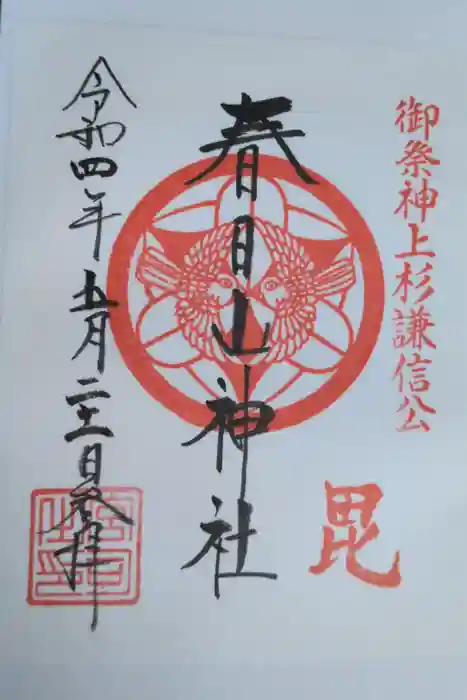 御祭神上杉謙信公
毘
春日山神社
令和四年五月二十一日参拝